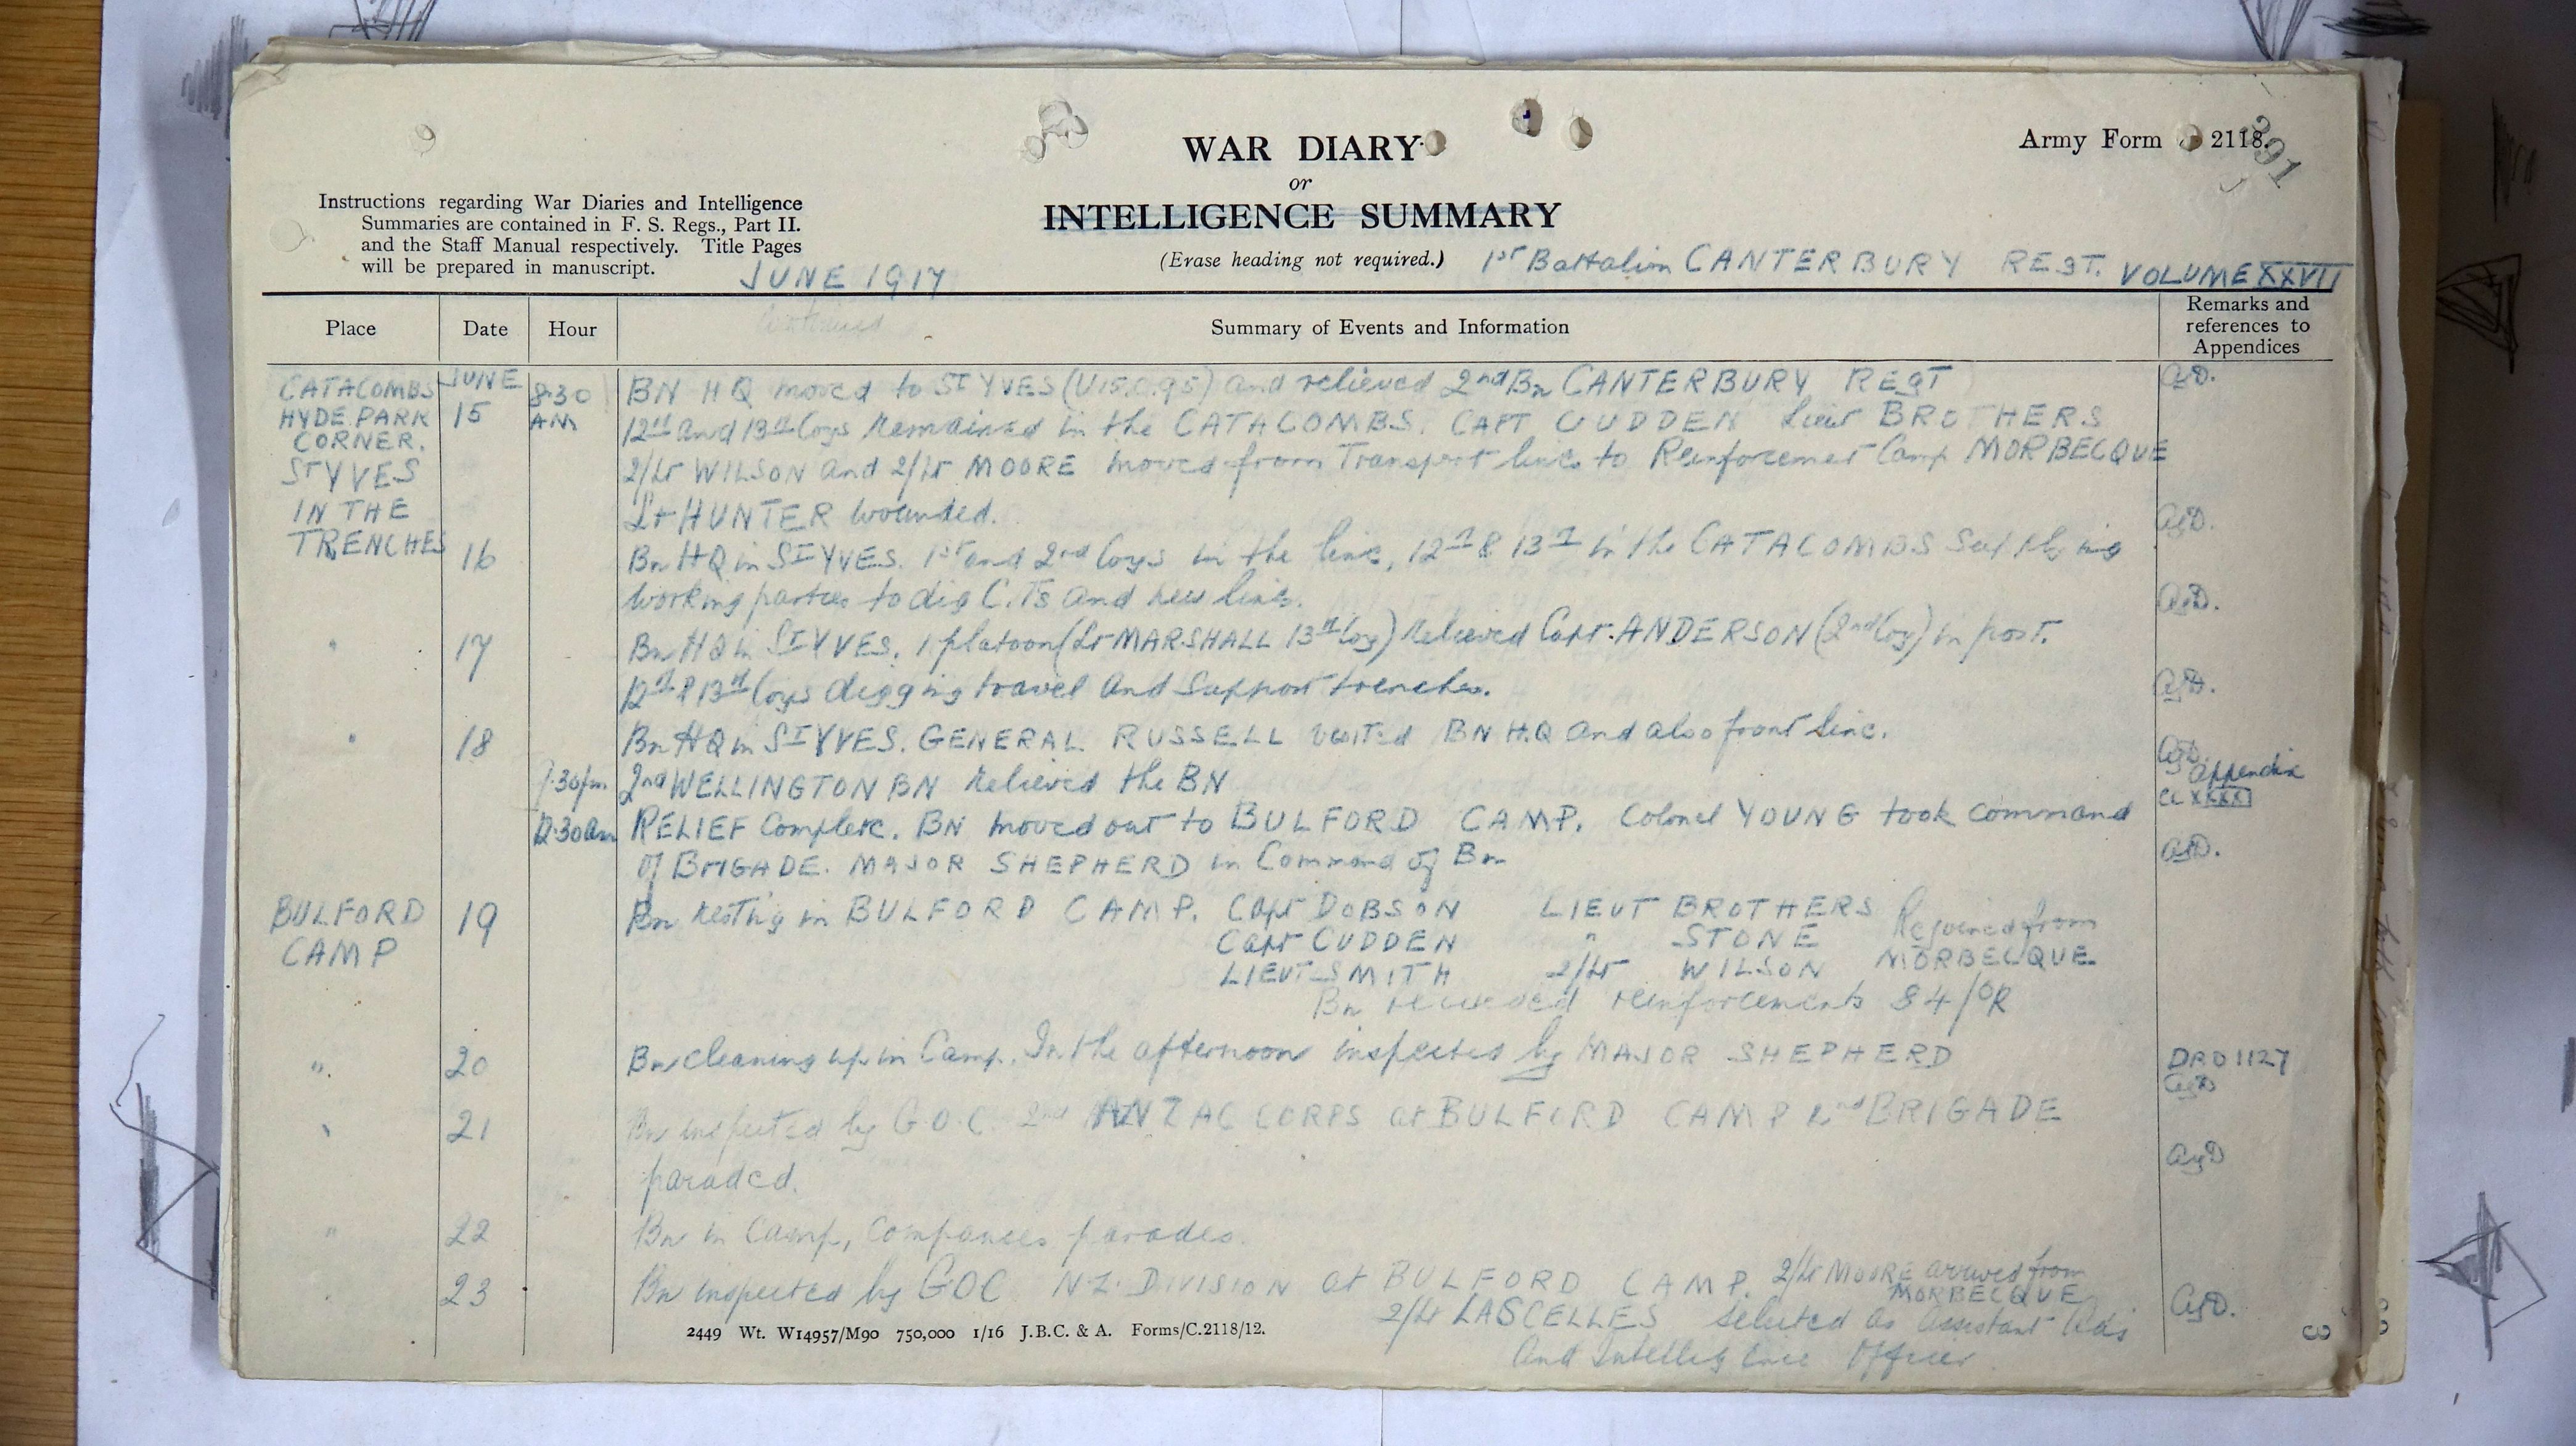 391
Army Form 2118.
WAR DIARY
or
INTELLIGENCE SUMMARY
(Erase heading not required.)
Instructions regarding War Diaries and Intelligence
Summaries are contained in F. S. Regs., Part II.
and the Staff Manual respectively. Title Pages
will be prepared in manuscript.
JUNE 1917
1st Battalion CANTERBURY REGT. VOLUME XXVII
Place Date Hour Summary of Events and Information Remarks and references to Appendices
CATACOMBS HYDE PARK CORNER. JUNE 15 8.30 AM BN HQ moved to ST YVES (U15.c.95) and relieved 2nd Bn CANTERBURY REGT
12th and 13th Coys remained in the CATACOMBS. CAPT CUDDEN Lieut BROTHERS
ST YVES 2/Lt WILSON and 2/Lt MOORE moved from Transport lines to Reinforcement Camp MORBECQUE
IN THE Lt HUNTER wounded.
TRENCHES 16 Bn HQ in ST YVES. 1st and 2nd Coys in the line, 12th & 13th in the CATACOMBS supplying
working parties to dig C.Ts and new line.
" 17 Bn HQ in ST YVES. 1 platoon (Lt MARSHALL 13th Coy) relieved Capt. ANDERSON (2nd Coy) in post.
12th & 13th Coys digging travel and support trenches.
" 18 Bn HQ in ST YVES. GENERAL RUSSELL visited BN H.Q and also front line.
.30pm 2nd WELLINGTON BN relieved the BN Appendix
12.30am RELIEF Complete. BN moved out to BULFORD CAMP. Colonel YOUNG took command
of BRIGADE. MAJOR SHEPHERD in Command of Bn
BULFORD CAMP 19 Bn resting in BULFORD CAMP. Capt DOBSON LIEUT BROTHERS Rejoined from
Capt CUDDEN " STONE MORBECQUE
LIEUT SMITH 2/Lt WILSON
Bn received reinforcements 84/OR
" 20 Bn cleaning up in Camp. In the afternoon inspected by MAJOR SHEPHERD DRO 1127
" 21 Bn inspected by G.O.C. 2nd ANZAC CORPS at BULFORD CAMP 2nd BRIGADE
paraded.
" 22 Bn in Camp, Companies parades.
" 23 Bn inspected by GOC N.Z. DIVISION at BULFORD CAMP. 2/Lt MOORE arrived from
MORBECQUE
2/Lt LASCELLES selected as assistant Adj
and Intelligence Officer
2449 Wt. W14957/M90 750,000 1/16 J.B.C. & A. Forms/C.2118/12.
3